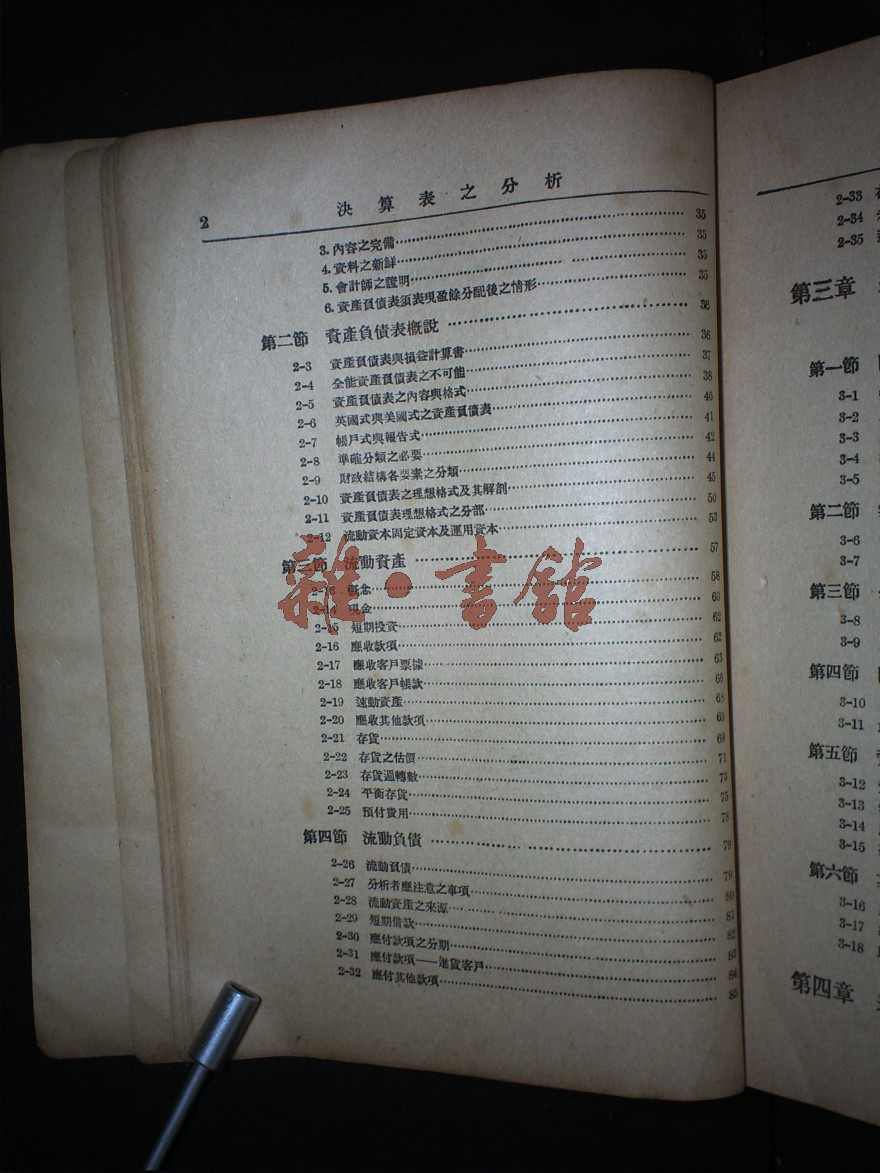 2
決算表之分析
3. 內容之完備 35
4. 資料之新鮮 35
5. 會計師之證明 35
6. 資產負債表須表現盈餘分配後之情形 35
第二節 資產負債表概說 36
2-3 資產負債表與損益計算書 36
2-4 全能資產負債表之不可能 37
2-5 資產負債表之內容與格式 38
2-6 英國式與美國式之資產負債表 40
2-7 帳戶式與報告式 41
2-8 準確分類之必要 42
2-9 財政結構各要素之分類 44
2-10 資產負債表之理想格式及其解剖 45
2-11 資產負債表理想格式之分部 50
2-12 流動資本固定資本及運用資本 53
第三節 流動資產 57
2-13 概念 58
2-14 現金 60
2-15 短期投資 62
2-16 應收款項 62
2-17 應收客戶票據 63
2-18 應收客戶帳款 66
2-19 速動資產 68
2-20 應收其他款項 69
2-21 存貨 69
2-22 存貨之估價 71
2-23 存貨週轉數 73
2-24 平衡存貨 75
2-25 預付費用 78
第四節 流動負債 79
2-26 流動負債 79
2-27 分析者應注意之事項 80
2-28 流動資產之來源 81
2-29 短期借款 82
2-30 應付款項之分期 83
2-31 應付款項——進貨客戶 84
2-32 應付其他款項 85
雜·書館
2-33
2-34
2-35
第三章
第一節
3-1
3-2
3-3
3-4
3-5
第二節
3-6
3-7
第三節
3-8
3-9
第四節
3-10
3-11
第五節
3-12
3-13
3-14
3-15
第六節
3-16
3-17
3-18
第四章